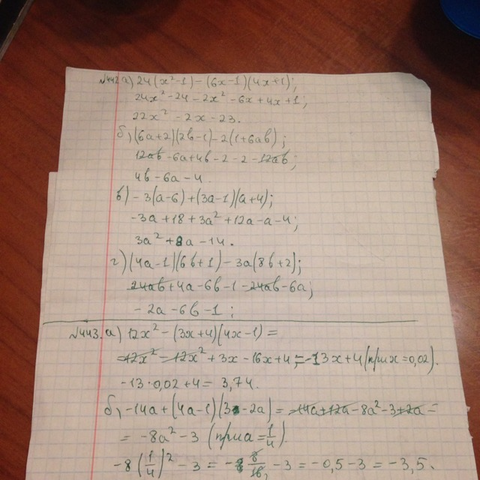 №442 а) 24(x²-1)-(6x-1)(4x+1);
24x²-24-2x²-6x+4x+1;
22x²-2x-23.
б) (6a+2)(2b-1)-2(1+6ab);
12ab-6a+4b-2-2-12ab;
4b-6a-4
в) -3(a-6)+(3a-1)(a+4);
-3a+18+3a²+12a-a-4;
3a²+8a-14.
г) (4a-1)(6b+1)-3a(8b+2);
24ab+4a-6b-1-24ab-6a;
-2a-6b-1;
№443. а) 12x²-(3x+4)(4x-1)=
12x²-12x²+3x-16x+4;=-13x+4(при x=0,02).
-13·0,02+4=3,74.
б) -14a+(4a-1)(3-2a)=-14a+12a-8a²-3+2a=
=-8a²-3 (при a=1/4)
-8(1/4)²-3=-8/16,-3=-0,5-3=-3,5.